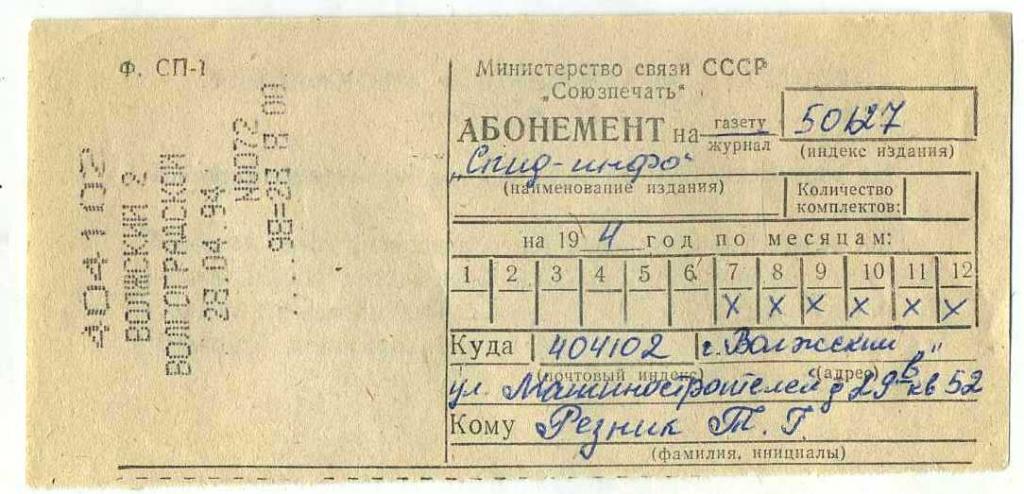 Ф. СП-1
404102
ВОЛЖСКИЙ 2
ВОЛГОГРАДСКОЙ
28.04.94
N0072
98=28 8 00
Министерство связи СССР
„Союзпечать“
АБОНЕМЕНТ на газету журнал
50127
(индекс издания)
„Спид-инфо“
(наименование издания)
Количество комплектов:
на 19 4 год по месяцам:
1 2 3 4 5 6 7 8 9 10 11 12
X X X X X X
Куда 404102 г. Волжский
(почтовый индекс) (адрес)
ул. Машиностроителей д 29 в кв 52
Кому Резник Т. Г.
(фамилия, инициалы)